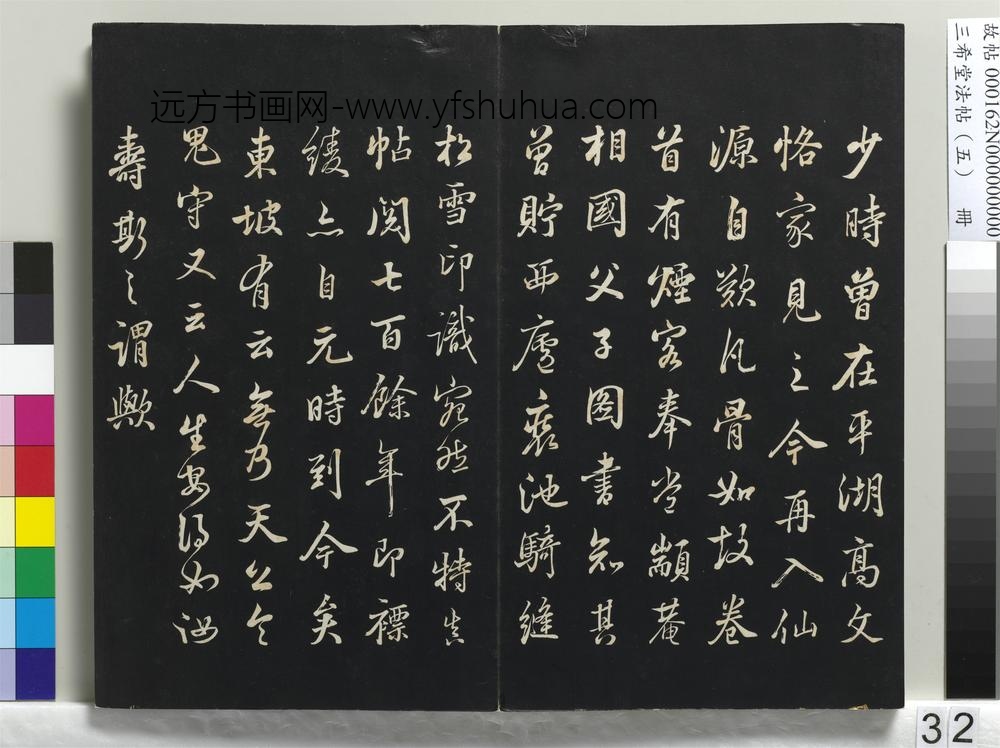 少時曾在平湖高文
恪家見之今再入仙
源自歎凡骨如故卷
首有煙客奉嘗顓菴
相國父子圖書知其
曾貯西廬裘池騎縫
松雪印識宛然不特真
帖閱七百餘年即褾
綾亦自元時到今矣
東坡有云無乃天公令
鬼守又云人生安得如汝
壽斯之謂歟
远方书画网-www.yfshuhua.com
故帖000162N000000000
三希堂法帖(五) 冊
32